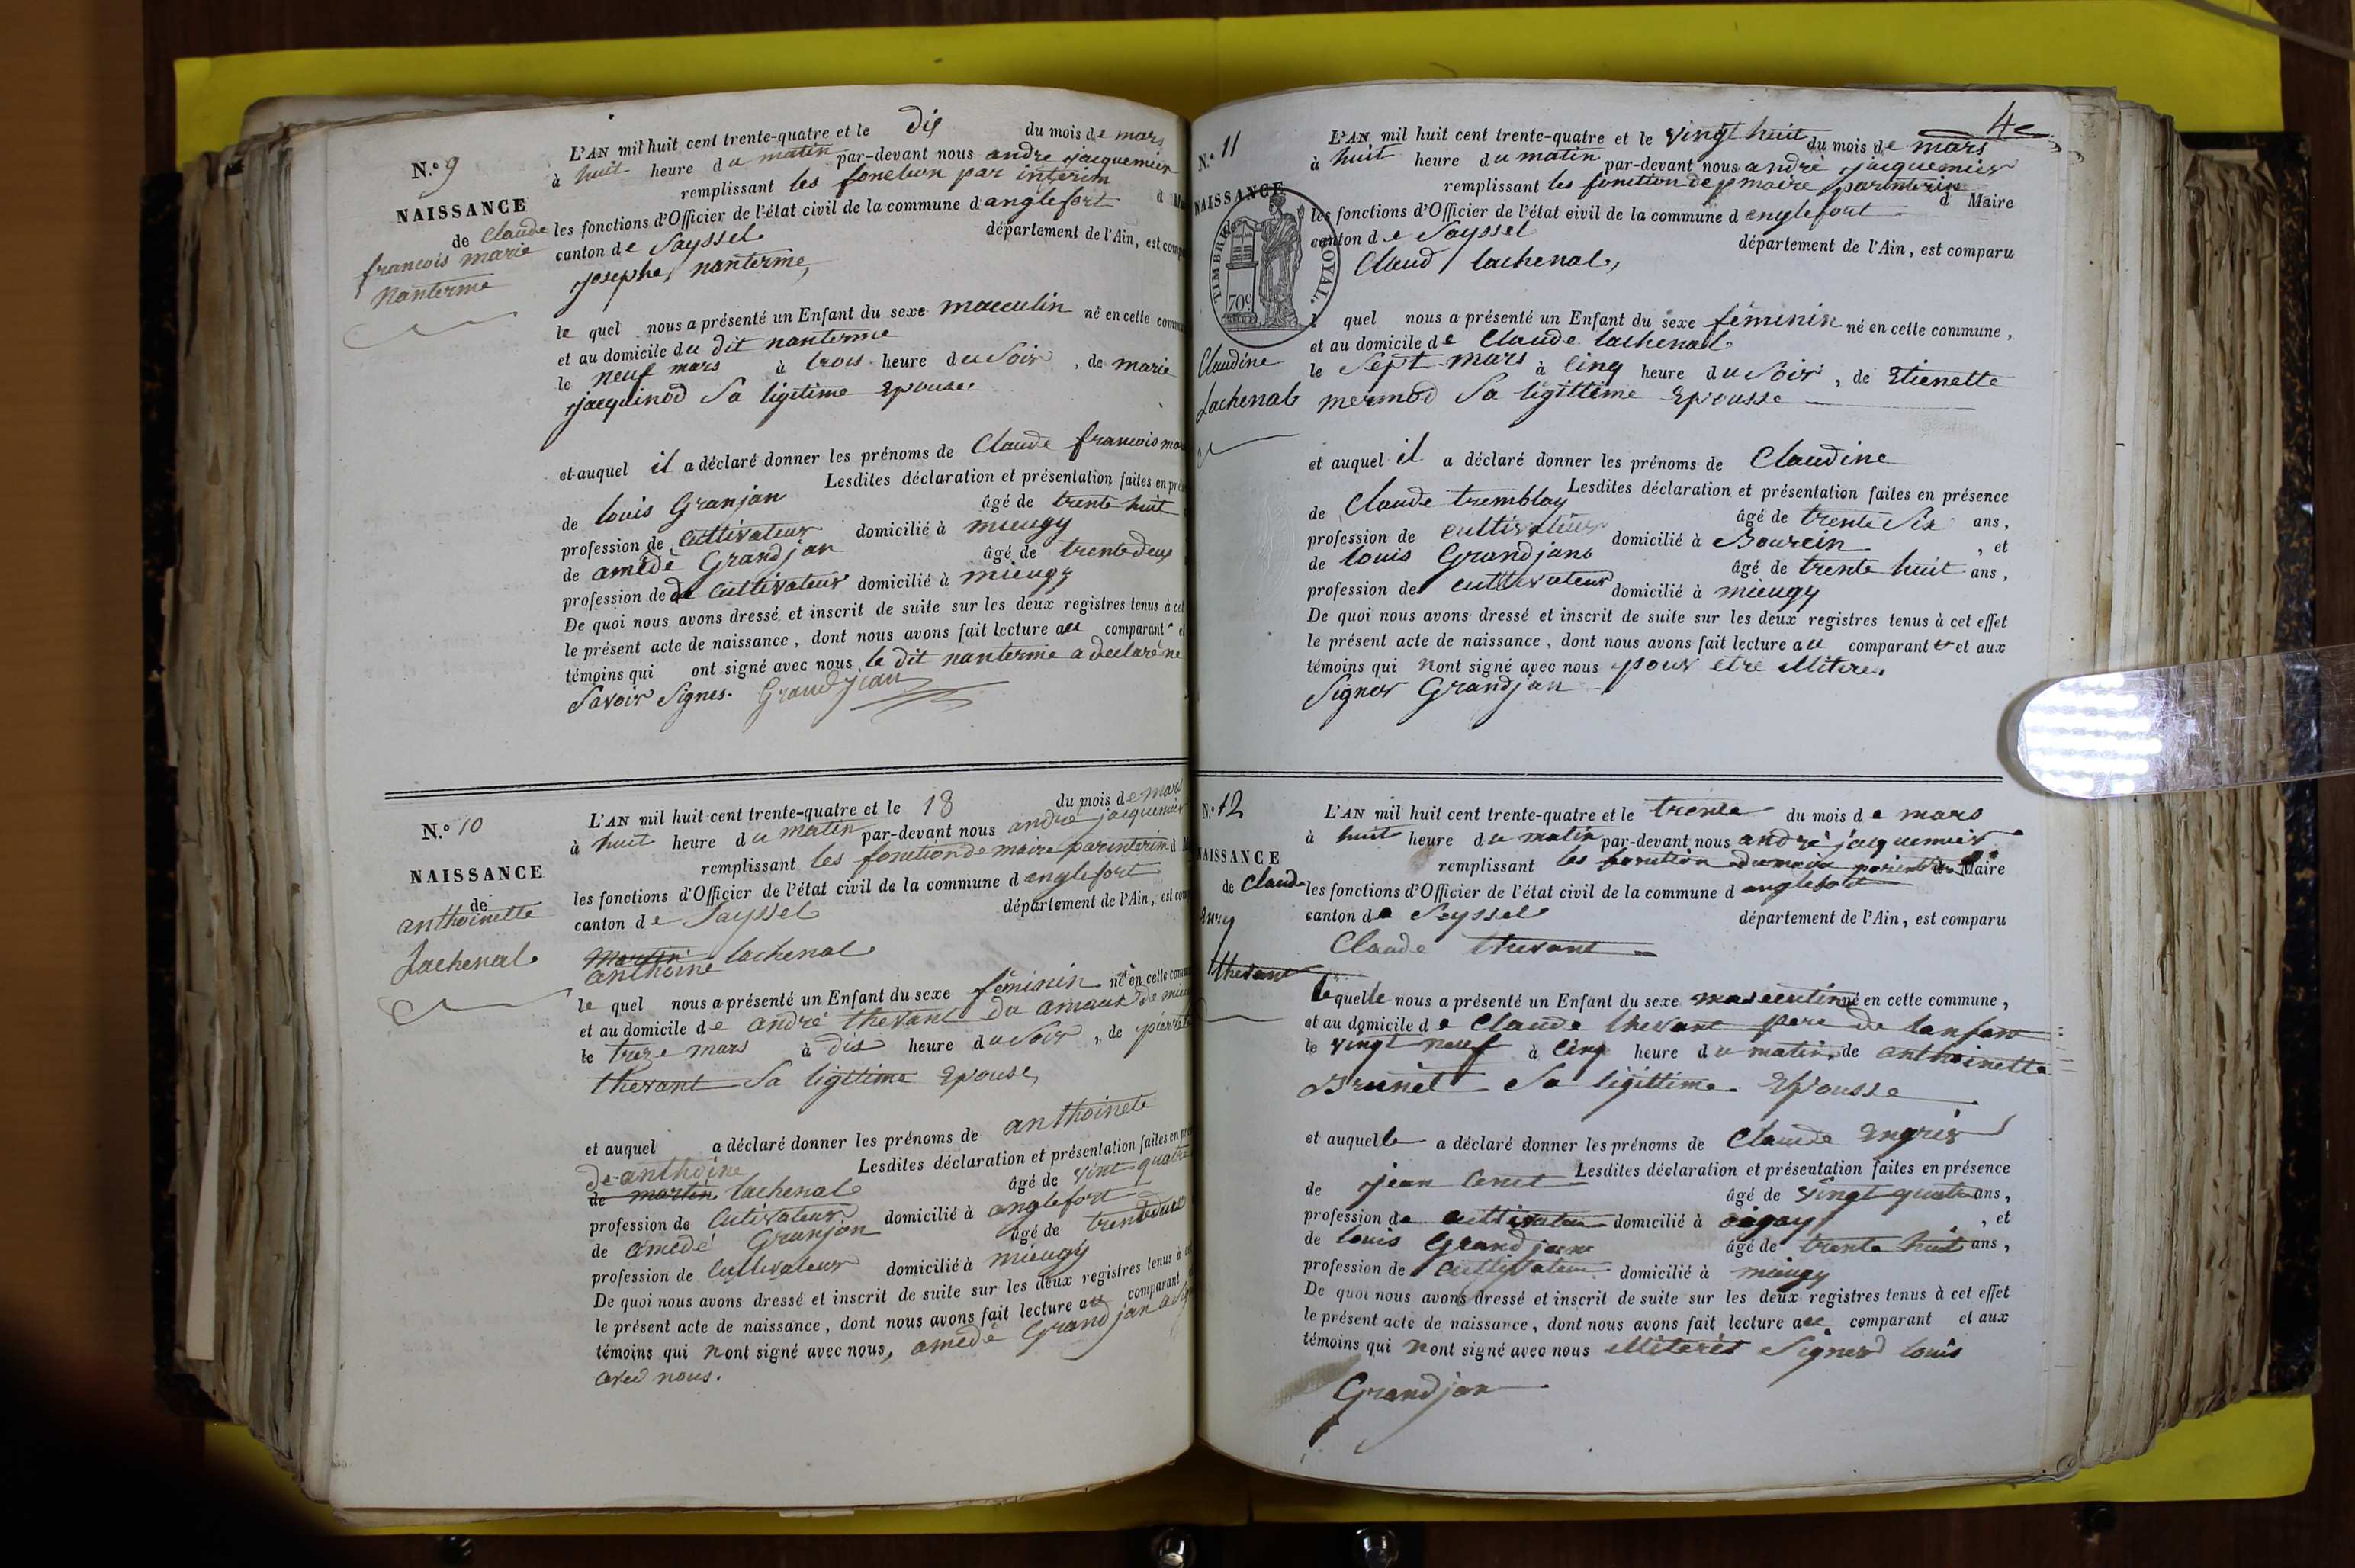 N.º 9
NAISSANCE
de Claude
francois marie
Nanterme
L'AN mil huit cent trente-quatre et le dix du mois de mars
à huit heure du matin par-devant nous andre jacquemier
remplissant les fonction par interim d
les fonctions d'Officier de l'état civil de la commune d anglefort
canton de Sayssel département de l'Ain, est comp
josephe nanterme,
le quel nous a présenté un Enfant du sexe masculin né en cette comm
et au domicile du dit nanterme
le neuf mars à trois heure du Soir, de marie
jacquinod Sa ligitime Epouse
et auquel il a déclaré donner les prénoms de Claude francois ma
Lesdites déclaration et présentation faites en pré
de louis Granjan âgé de trente huit
profession de Cultivateur domicilié à mieugy
de amédé Grandjan âgé de trente deux
profession de de Cultivateur domicilié à mieugy
De quoi nous avons dressé et inscrit de suite sur les deux registres tenus à cet
le présent acte de naissance, dont nous avons fait lecture au comparant et
témoins qui ont signé avec nous le dit nanterme a declaré ne
Savoir Signer. Grandjean
N.º 10
NAISSANCE
de
anthoinette
Lachenal
L'AN mil huit cent trente-quatre et le 18 du mois de mars
à huit heure du matin par-devant nous andré jacquemier
remplissant les fonction de maire parinterim d
les fonctions d'Officier de l'état civil de la commune d anglefort
canton de Sayssel département de l'Ain, est com
Martin lachenal
anthoine
le quel nous a présenté un Enfant du sexe féminin né en cette comm
et au domicile de andré thevant du amaux de mieu
le treze mars à dix heure du Soir, de pierrette
thevant Sa ligitime Epouse,
et auquel a déclaré donner les prénoms de anthoinete
de anthoine Lesdites déclaration et présentation faites en pré
de martin lachenal âgé de vint quatre
profession de Cutivateur domicilié à anglefort
de amedé Granjon âgé de trentedeux
profession de Cultivateur domicilié à mieugy
De quoi nous avons dressé et inscrit de suite sur les deux registres tenus à c
le présent acte de naissance, dont nous avons fait lecture au comparant
témoins qui nont signé avec nous, amedé Grandjan a
avec nous.
4e
N.º 11
NAISSANCE
de
TIMBRE ROYAL.
70c
Claudine
Lachenal
L'AN mil huit cent trente-quatre et le vingt huit du mois de mars
à huit heure du matin par-devant nous andré jacquemier
remplissant les fonction de maire parinterin d Maire
les fonctions d'Officier de l'état civil de la commune d englefort
canton de Sayssel département de l'Ain, est comparu
Claud lachenal,
l quel nous a présenté un Enfant du sexe féminin né en cette commune,
et au domicile de Claude lachenal
le Sept mars à Cinq heure du Soir, de Etienette
mermod Sa ligittime Epousse
et auquel il a déclaré donner les prénoms de Claudine
Lesdites déclaration et présentation faites en présence
de Claude tremblay âgé de trente Six ans,
profession de cultivateur domicilié à Bourcin, et
de louis Grandjans âgé de trente huit ans,
profession de cultivateur domicilié à mieugy
De quoi nous avons dressé et inscrit de suite sur les deux registres tenus à cet effet
le présent acte de naissance, dont nous avons fait lecture au comparant et et aux
témoins qui nont signé avec nous pour etre illitere.
Signer Grandjan
N.º 12
NAISSANCE
de Claude
thevant
L'AN mil huit cent trente-quatre et le trente du mois de mars
à huit heure du matin par-devant nous andré jacquemier
remplissant les fonction dumaire parinterim de Maire
les fonctions d'Officier de l'état civil de la commune d anglefort
canton de Seyssel département de l'Ain, est comparu
Claude thevant
lequelle nous a présenté un Enfant du sexe masceulin né en cette commune,
et au domicile de Claude thevant pere de lanfant
le vingt neuf à Cinq heure du matin, de anthoinette
Brunet Sa ligittime Epousse
et auquelle a déclaré donner les prénoms de Claude Engris
Lesdites déclaration et présentation faites en présence
de jean Cenet âgé de vingt quatre ans,
profession de cultivateur domicilié à oigay, et
de louis Grandjean âgé de trente huit ans,
profession de Cultivateur domicilié à mieugy
De quoi nous avons dressé et inscrit de suite sur les deux registres tenus à cet effet
le présent acte de naissance, dont nous avons fait lecture au comparant et aux
témoins qui nont signé avec nous illiterét Signer louis
Grandjan